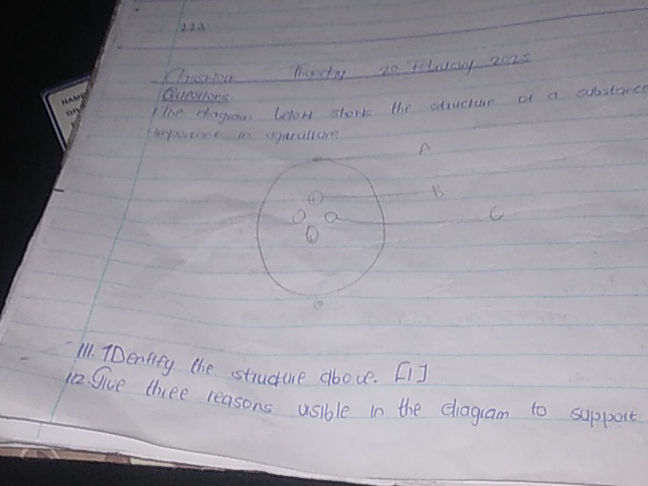 Thursday 20 February 2025
Questions
1 The diagram below shows the structure of a substance
important in agriculture
A
B
C
1.1.1. IDentify the structure above. [1]
1.1.2. Give three reasons visible in the diagram to support